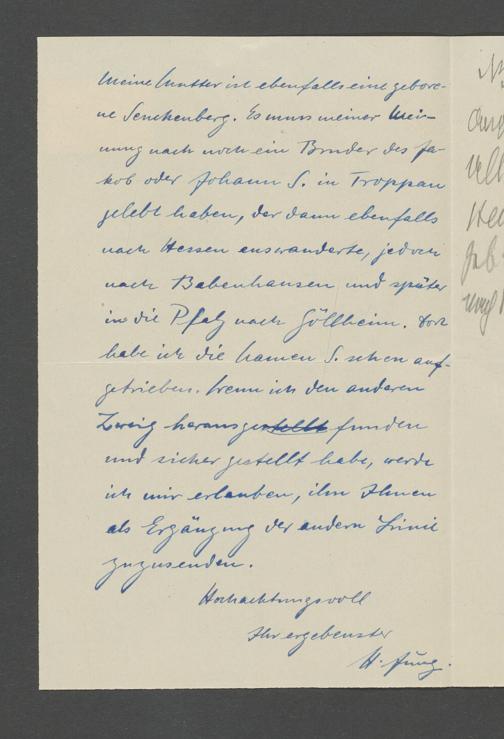 Meine Mutter ist ebenfalls eine gebore-
ne Senckenberg. Es muss meiner Mei-
nung nach noch ein Bruder des Ja-
kob oder Johann S. in Troppau
gelebt haben, der dann ebenfalls
nach Hessen auswanderte, jedoch
nach Babenhausen und später
in die Pfalz nach Göllheim. Dort
habe ich die Namen S. schon auf-
getrieben. Wenn ich den anderen
Zweig herausgestellt funden
und sicher gestellt habe, werde
ich mir erlauben, ihn Ihnen
als Ergänzung der andern Linie
zuzusenden.
Hochachtungsvoll
Ihr ergebenster
H. Jung.